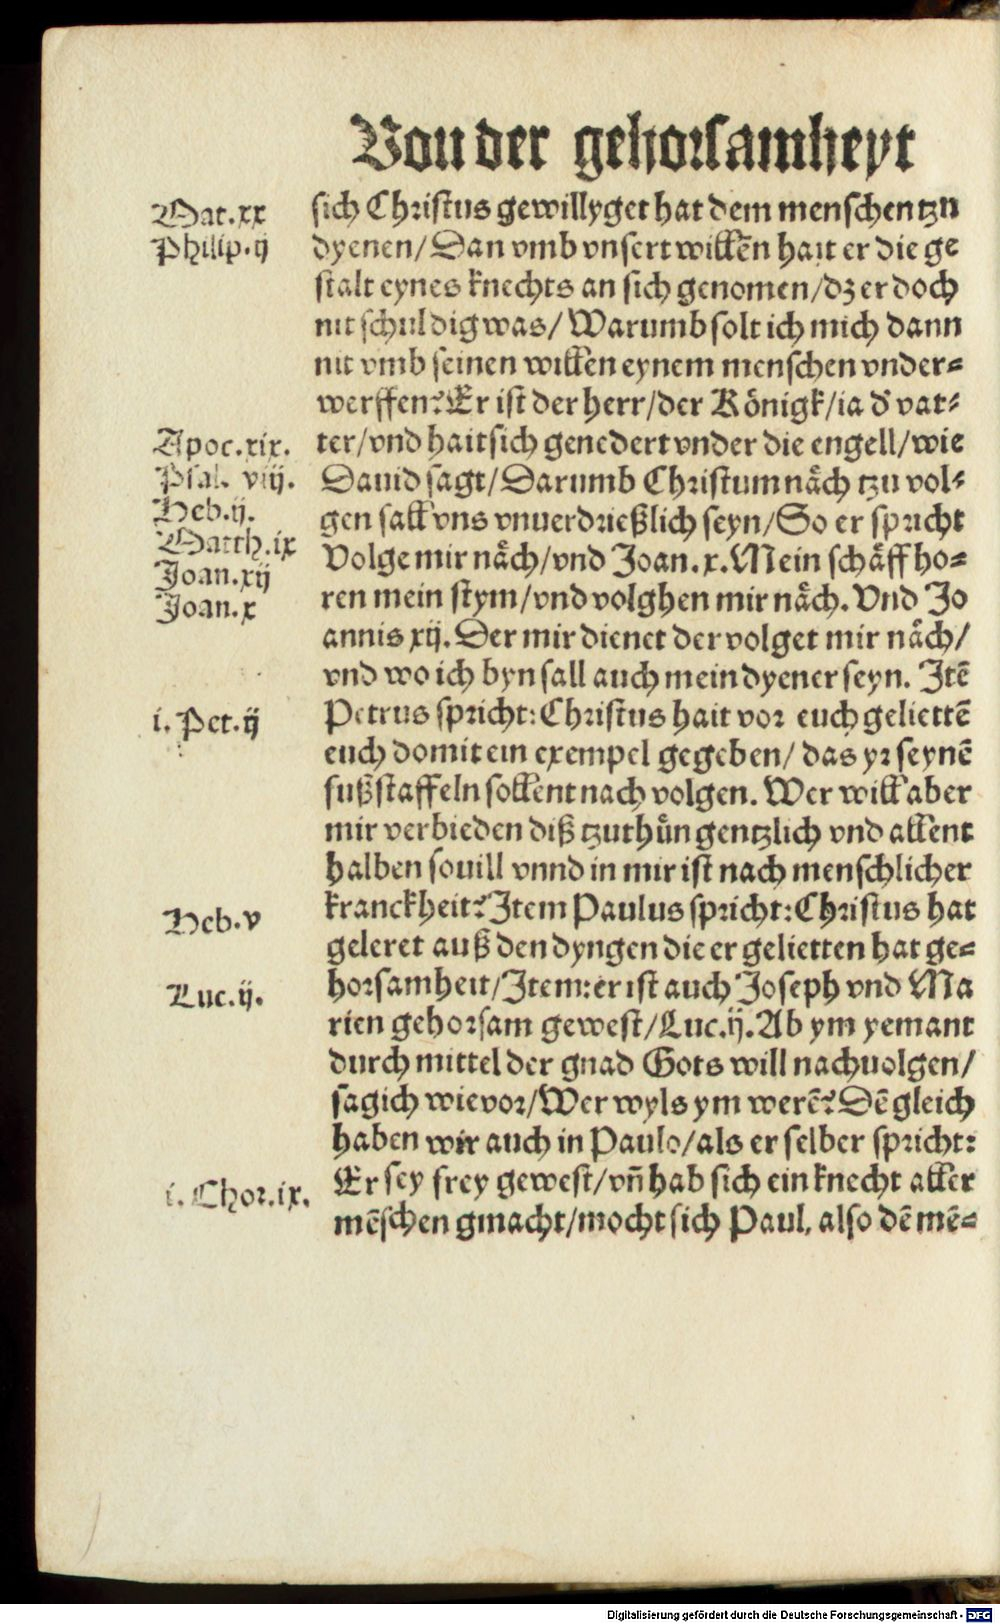 Von der gehorsamheyt
Mat.xx
Philip.ij
sich Christus gewillyget hat dem menschen tzu
dyenen/Dan vmb vnsert willẽn hait er die ge
stalt eynes knechts an sich genomen/dz er doch
nit schuldig was/Warumb solt ich mich dann
nit vmb seinen willen eynem menschen vnder⸗
werffen?Er ist der herr/der Kônigk/ia d' vat⸗
Apoc.xix.
Psal. viij.
Heb.ij.
Matth.ix
Joan.xij
Joan.x
ter/vnd hait sich genedert vnder die engell/wie
Dauid sagt/Darumb Christum nåch tzu vol⸗
gen sall vns vnuerdrießlich seyn/So er spricht
Volge mir nåch/vnd Joan.x.Mein schåff ho⸗
ren mein stym/vnd volghen mir nåch.Vnd Jo
annis xij.Der mir dienet der volget mir nåch/
vnd wo ich byn sall auch mein dyener seyn. Itẽ
i. Pet.ij
Petrus spricht:Christus hait vor euch geliettẽ
euch domit ein exempel gegeben/ das yr seynẽ
fußstaffeln sollent nach volgen. Wer will aber
mir verbieden diß tzuthůn gentzlich vnd allent
halben souill vnnd in mir ist nach menschlicher
Heb.v
kranckheit?Item Paulus spricht:Christus hat
geleret auß den dyngen die er gelietten hat ge⸗
Luc.ij.
horsamheit/Item:er ist auch Joseph vnd Ma
rien gehorsam gewest/Luc.ij.Ab ym yemant
durch mittel der gnad Gots will nachuolgen/
sag ich wie vor/Wer wyls ym werẽ?Dẽ gleich
haben wir auch in Paulo/als er selber spricht:
i. Chor.ix.
Er sey frey gewest/vñ hab sich ein knecht aller
mẽschen gmacht/mocht sich Paul. also dẽ mẽ⸗
Digitalisierung gefördert durch die Deutsche Forschungsgemeinschaft - DFG